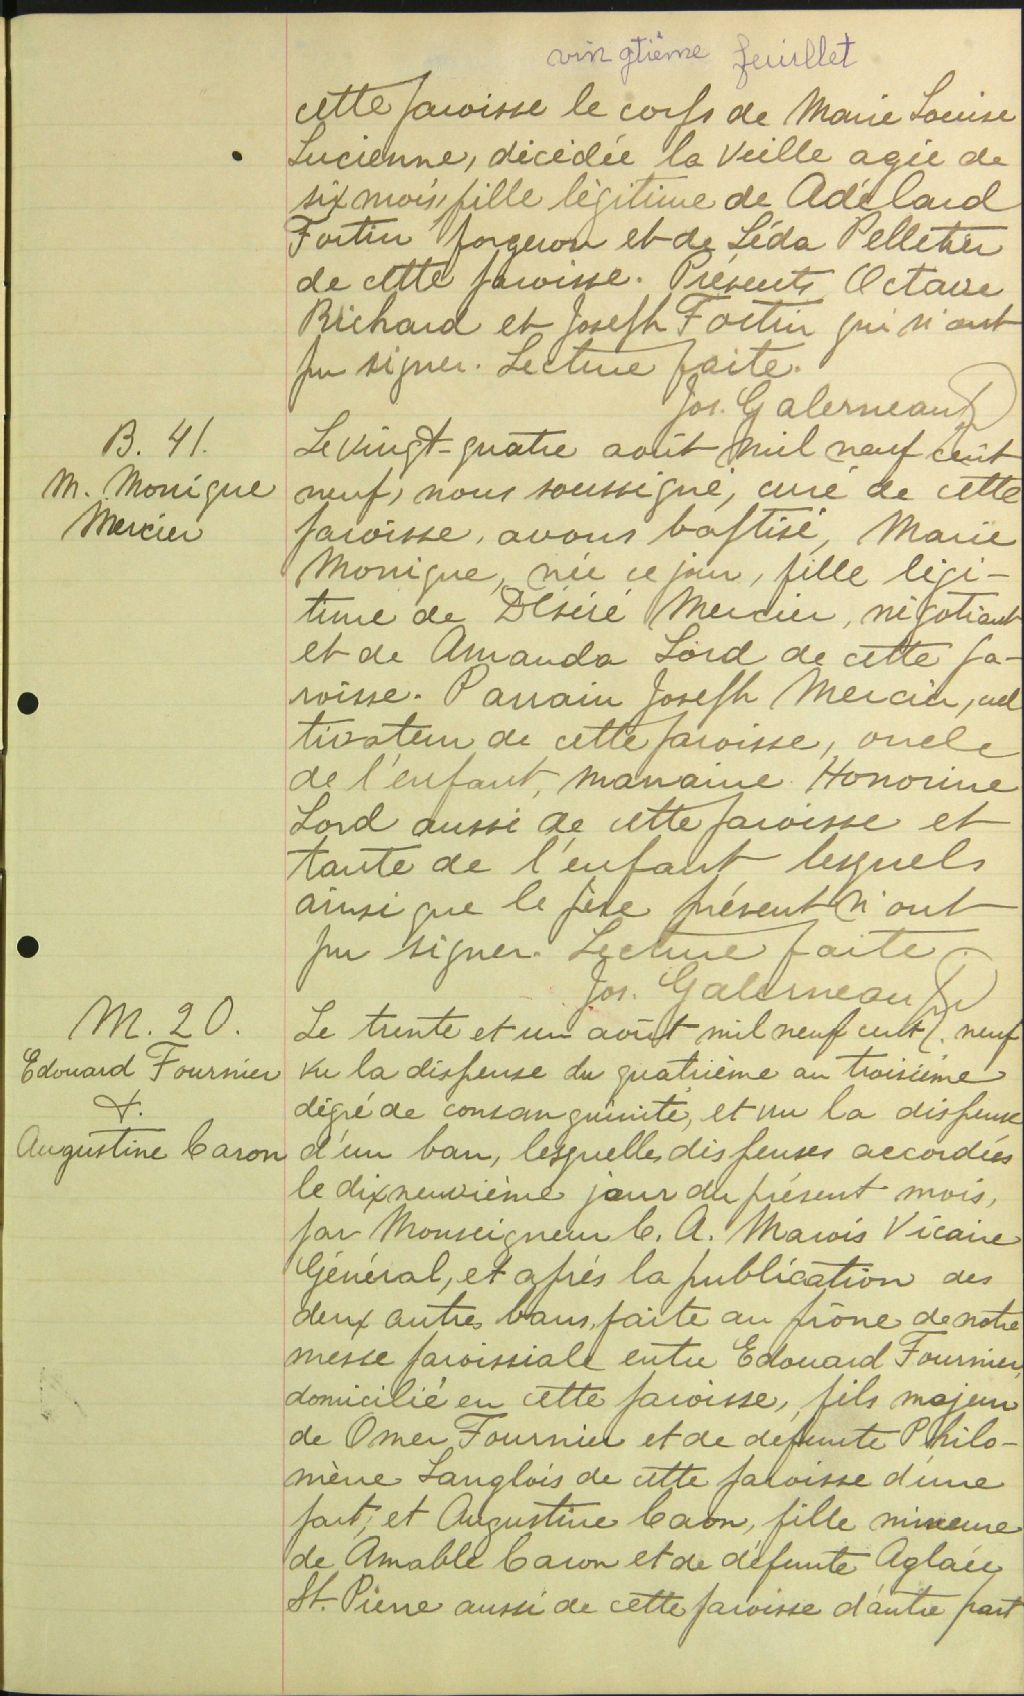 vingtième feuillet
cette paroisse le corps de Marie Louise
Lucienne, décédée la veille agée de
six mois, fille légitime de Adélard
Fortin forgeron et de Léda Pelletier
de cette paroisse. Présents Octave
Richard et Joseph Fortin qui n'ont
pu signer. Lecture faite.
Jos. Galerneau Ptr
B. 41.
M. Monique
Mercier
Le vingt-quatre août mil neuf cent
neuf, nous soussigné, curé de cette
paroisse, avons baptisé, Marie
Monique, née ce jour, fille légi-
time de Désiré Mercier, négotiant
et de Amanda Lord de cette pa-
roisse. Parrain Joseph Mercier, cul
tivateur de cette paroisse, oncle
de l'enfant, marraine Honorine
Lord aussi de cette paroisse et
tante de l'enfant lesquels
ainsi que le père présent n'ont
pu signer. Lecture faite.
Jos. Galerneau Ptr
M. 20.
Edouard Fournier
&.
Augustine Caron
Le trente et un août mil neuf cent neuf
vu la dispense du quatrième au troisième
dégré de consanguinité, et vu la dispense
d'un ban, lesquelles dispenses accordées
le dixneuvième jour du présent mois,
par Monseigneur C. A. Marois Vicaire
Général, et après la publication des
deux autres bans, faite au prône de notre
messe paroissiale entre Edouard Fournier,
domicilié en cette paroisse, fils majeur
de Omer Fournier et de defunte Philo-
mène Langlois de cette paroisse d'une
part, et Augustine Caon, fille mineure
de Amable Caron et de défunte Aglaée
St. Pierre aussi de cette paroisse d'autre part